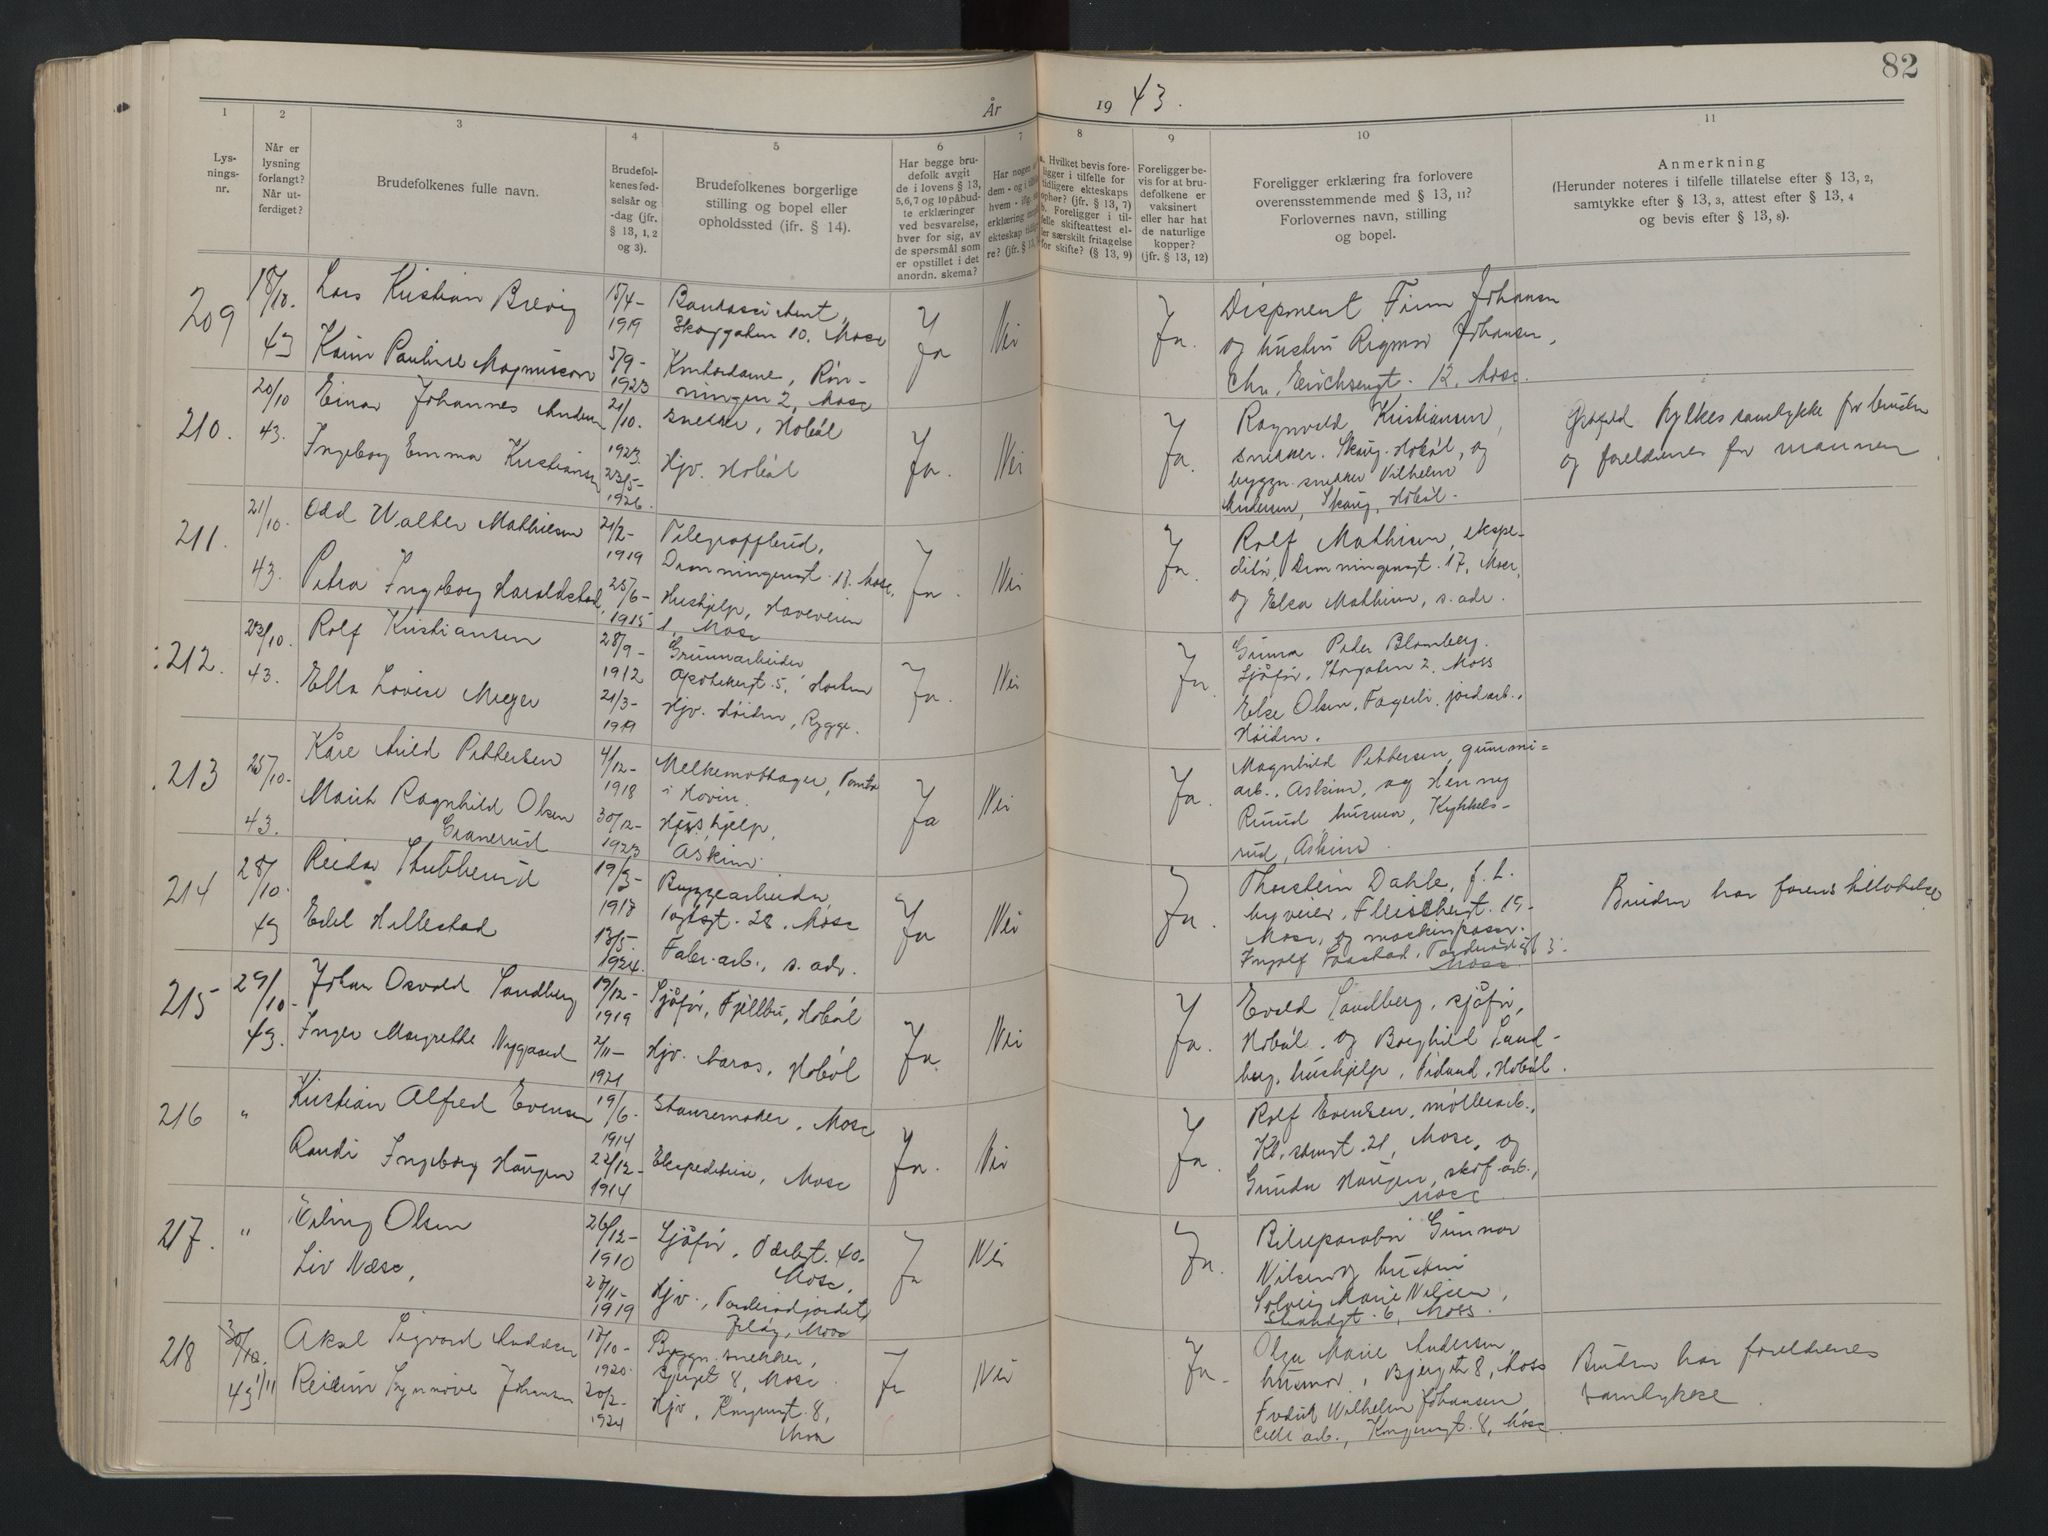 82
År
19 43.
1
2
3
4
5
6
7
8
9
10
11
Lys-
nings-
nr.
Når er
lysning
forlangt?
Når ut-
ferdiget?
Brudefolkenes fulle navn.
Brudefol-
kenes fød-
selsår og
-dag (jfr.
§ 13, 1, 2
og 3).
Brudefolkenes borgerlige
stilling og bopel eller
opholdssted (ifr. § 14).
Har begge bru-
defolk avgit
de i lovens § 13,
5,6,7 og 10 påbud-
te erklæringer
ved besvarelse,
hver for sig, av
de spørsmål som
er opstillet i det
anordn. skema?
Har nogen
dem - og i
hvem -
erklæring
ekteskap
re? (jfr. § 13,
a. Hvilket bevis fore-
ligger i tilfelle for
tidligere ekteskaps
ophør? (jfr. § 13, 7)
b. Foreligger i til-
felle skifteattest el-
ler særskilt fritagelse
for skifte? (§ 13, 9)
Foreligger be-
vis for at bru-
defolkene er
vaksinert
eller har hat
de naturlige
kopper?
(jfr. § 13, 12)
Foreligger erklæring fra forlovere
overensstemmende med § 13, 11?
Forlovernes navn, stilling
og bopel.
Anmerkning
(Herunder noteres i tilfelle tillatelse efter § 13, 2,
samtykke efter § 13, 3, attest efter § 13, 4
og bevis efter § 13, 8).
209
18/10.
43
Lars Kristian Brevig
Karin Pauline Magnusson
15/4-
1919
5/9-
1923
Bankassistent,
Skoggaten 10, Moss
Kontordame, Røn-
ningen 2, Moss
Ja
Nei
Ja.
Disponent Finn Johansen
og hustru Ragna Johansen,
Chr. Erichsensgt. 12, Moss.
210.
20/10
43.
Einar Johannes Andersen
Ingeborg Emma Kristiansen
21/10.
1923.
23/5-
1926.
snekker, Hobøl
Hjv. Hobøl
Ja.
Nei
Ja.
Ragnvald Kristiansen,
snekker. Skaug. Hobøl, og
byggn. snekker Vilhelm
Andersen, Skaug, Hobøl.
fylkes samtykke for bruden
og foreldrenes for mannen
211.
21/10.
43.
Odd Walter Mathiesen
Petra Ingeborg Haroldstad,
21/2-
1919
25/6-
1915
Telegrafflærud,
Dronningensgt. 17. Moss,
Hushjelp, Haveveien
1, Moss
Ja.
Nei
Ja.
Rolf Mathisen, ekspe-
ditør, Dronningensgt. 17, Moss,
og Elsa Mathisen, s. adr.
212.
23/10
43.
Rolf Kristiansen
Ella Lovise Meyer
28/9-
1912
21/3-
1919
Grunnarbeider
Apotekergt. 5, Horten
Hjv. Høiden, Rygge.
Ja.
Nei
Ja.
Gunnar Peder Blomberg.
Sjåfør, Storgaten 2. Moss
Else Olsen, Fagerli, jordarb.,
Høiden.
213
25/10-
43.
Kåre Arild Pettersen
Marit Ragnhild Olsen
Granerud
4/12-
1918
30/12-
1923
Melkemottager, Tomter
i Hovin.
Hushjelp,
Askim.
Ja
Nei
Ja.
Magnhild Pettersen, gummi-
arb., Askim, og Henny
Ruud husmor, Kykkels-
rud, Askim.
214
28/10.
43
Reidar Stubberud
Edel Hillestad
19/3-
1918
13/5.
1924.
Byggearbeider,
Vogtsgt. 28, Moss
Fabr. arb., s. adr.
Ja
Nei
Ja.
Thorstein Dahle, f. L.
byveier, Fleischersgt. 19-
Moss, og maskinpasser.
Ingolf
Moss.
Bruden har farens tillatelse
215
29/10-
43.
Johan Osvald Sandberg
Inger Margrethe Nygaard
19/12-
1919
2/11-
1921
Sjåfør, Fjellbu, Hobøl
Hjv. Aaras, Hobøl
Ja.
Nei
Ja.
Evald Sandberg, sjåfør,
Hobøl, og Borghild Sand-
berg, hushjelp, Hobøl.
216
"
Kristian Alfred Evensen
Randi Ingeborg Haugen
19/6.
1914
22/12-
1914
Stansemaker, Moss
Ekspeditrise, Moss
Ja.
Nei
Ja.
Rolf Evensen, møllerarb.,
Kl. 21, Moss, og
Gunda Haugen, skof. arb.,
Moss
217.
"
Erling Olsen
Liv Næss,
26/12-
1910
28/11-
1919
Sjåfør, 40-
Moss,
Hjv.,
Jeløy, Moss
Ja
Nei
Ja.
Bilreparatør Gunnar
Nilsen og hustru
Solveig Marie Nilsen,
Strandgt. 6, Moss.
218
30/10.
43 1/11
Aksel Sigvard Andersen
Reidun Synnøve Johansen
18/10-
1920.
20/2-
1924
Byggn. snekker,
Bjergt 8, Moss
Hjv, Kongensgt. 8,
Moss
Ja
Nei
Ja.
Olga Marie Andersen
husmor, Bjergt 8, Moss
Fredrik Wilhelm Johansen
Cell. arb., Kongensgt. 8, Moss.
Bruden har foreldrenes
samtykke